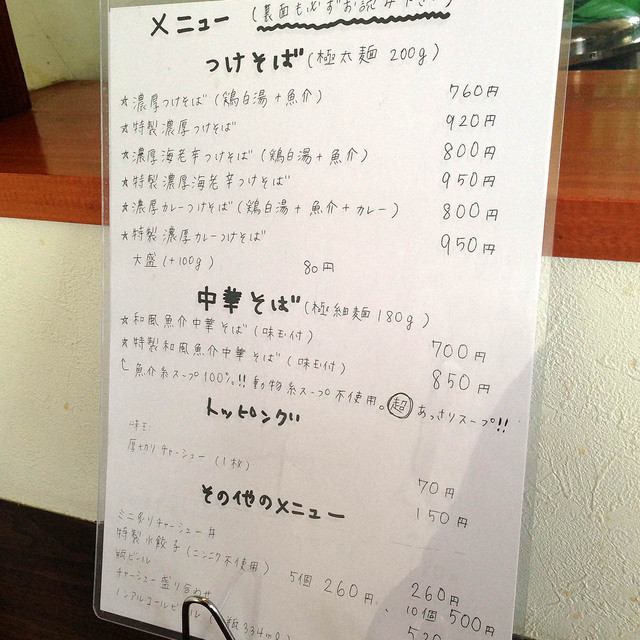 メニュー (裏面も必ずお読み下さい)
つけそば (極太麺 200g)
★濃厚つけそば (鶏白湯+魚介) 760円
★特製濃厚つけそば 920円
★濃厚海老辛つけそば (鶏白湯+魚介) 800円
★特製濃厚海老辛つけそば 950円
★濃厚カレーつけそば (鶏白湯+魚介+カレー) 800円
★特製濃厚カレーつけそば 950円
大盛 (+100g) 80円
中華そば (極細麺 180g)
★和風魚介中華そば (味玉付) 700円
★特製和風魚介中華そば (味玉付) 850円
魚介系スープ100%!! 動物系スープ不使用。超あっさりスープ!!
トッピング
味玉 70円
厚切りチャーシュー (1枚) 150円
その他のメニュー
ミニ炙りチャーシュー丼 260円
特製水餃子 (ニンニク不使用) 5個 260円、10個 500円
瓶ビール
チャーシュー盛り合わせ
ノンアルコールビール 334ml)